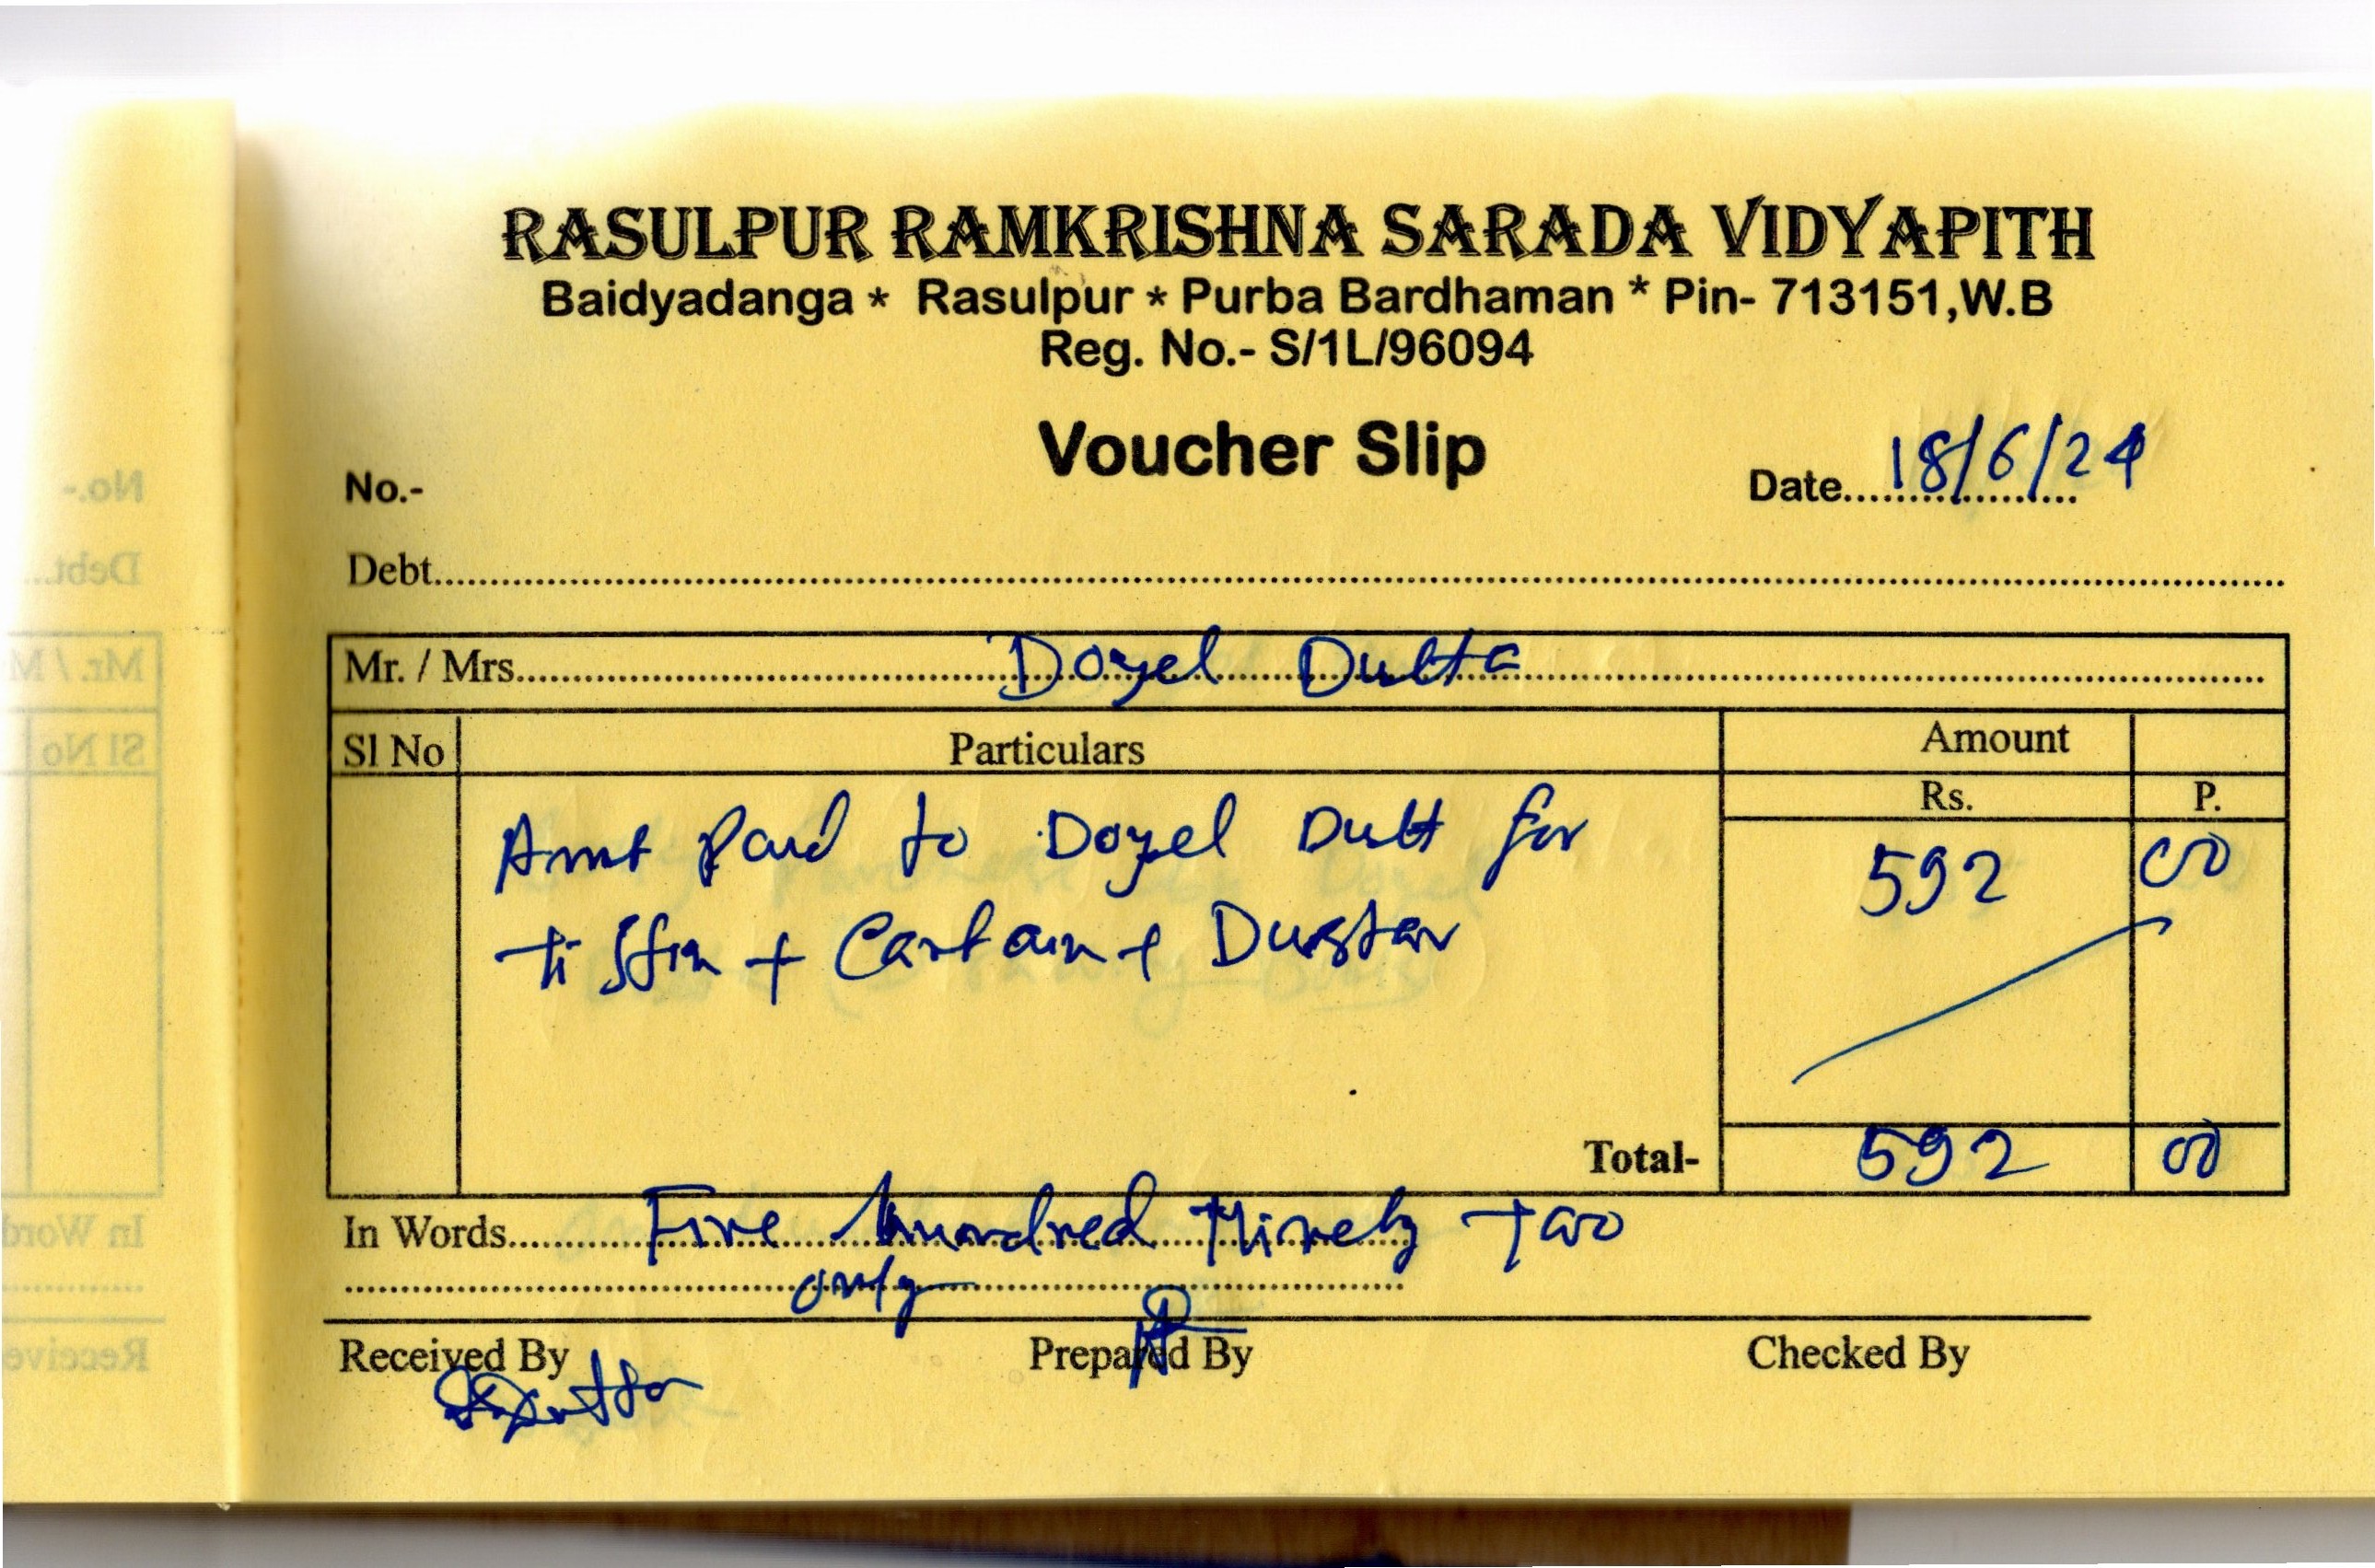 RASULPUR RAMKRISHNA SARADA VIDYAPITH
Baidyadanga * Rasulpur * Purba Bardhaman * Pin- 713151,W.B
Reg. No.- S/1L/96094
Voucher Slip
No.-
Date 18/6/24
Debt
Mr. / Mrs. Doyel Dutta
Sl No Particulars Amount
Rs. P.
Amt Paid to Doyel Dutt for 592 00
tiffin + Cartain + Duster
Total- 592 00
In Words Five hundred Ninety Two
only
Received By Prepared By Checked By
DDutta